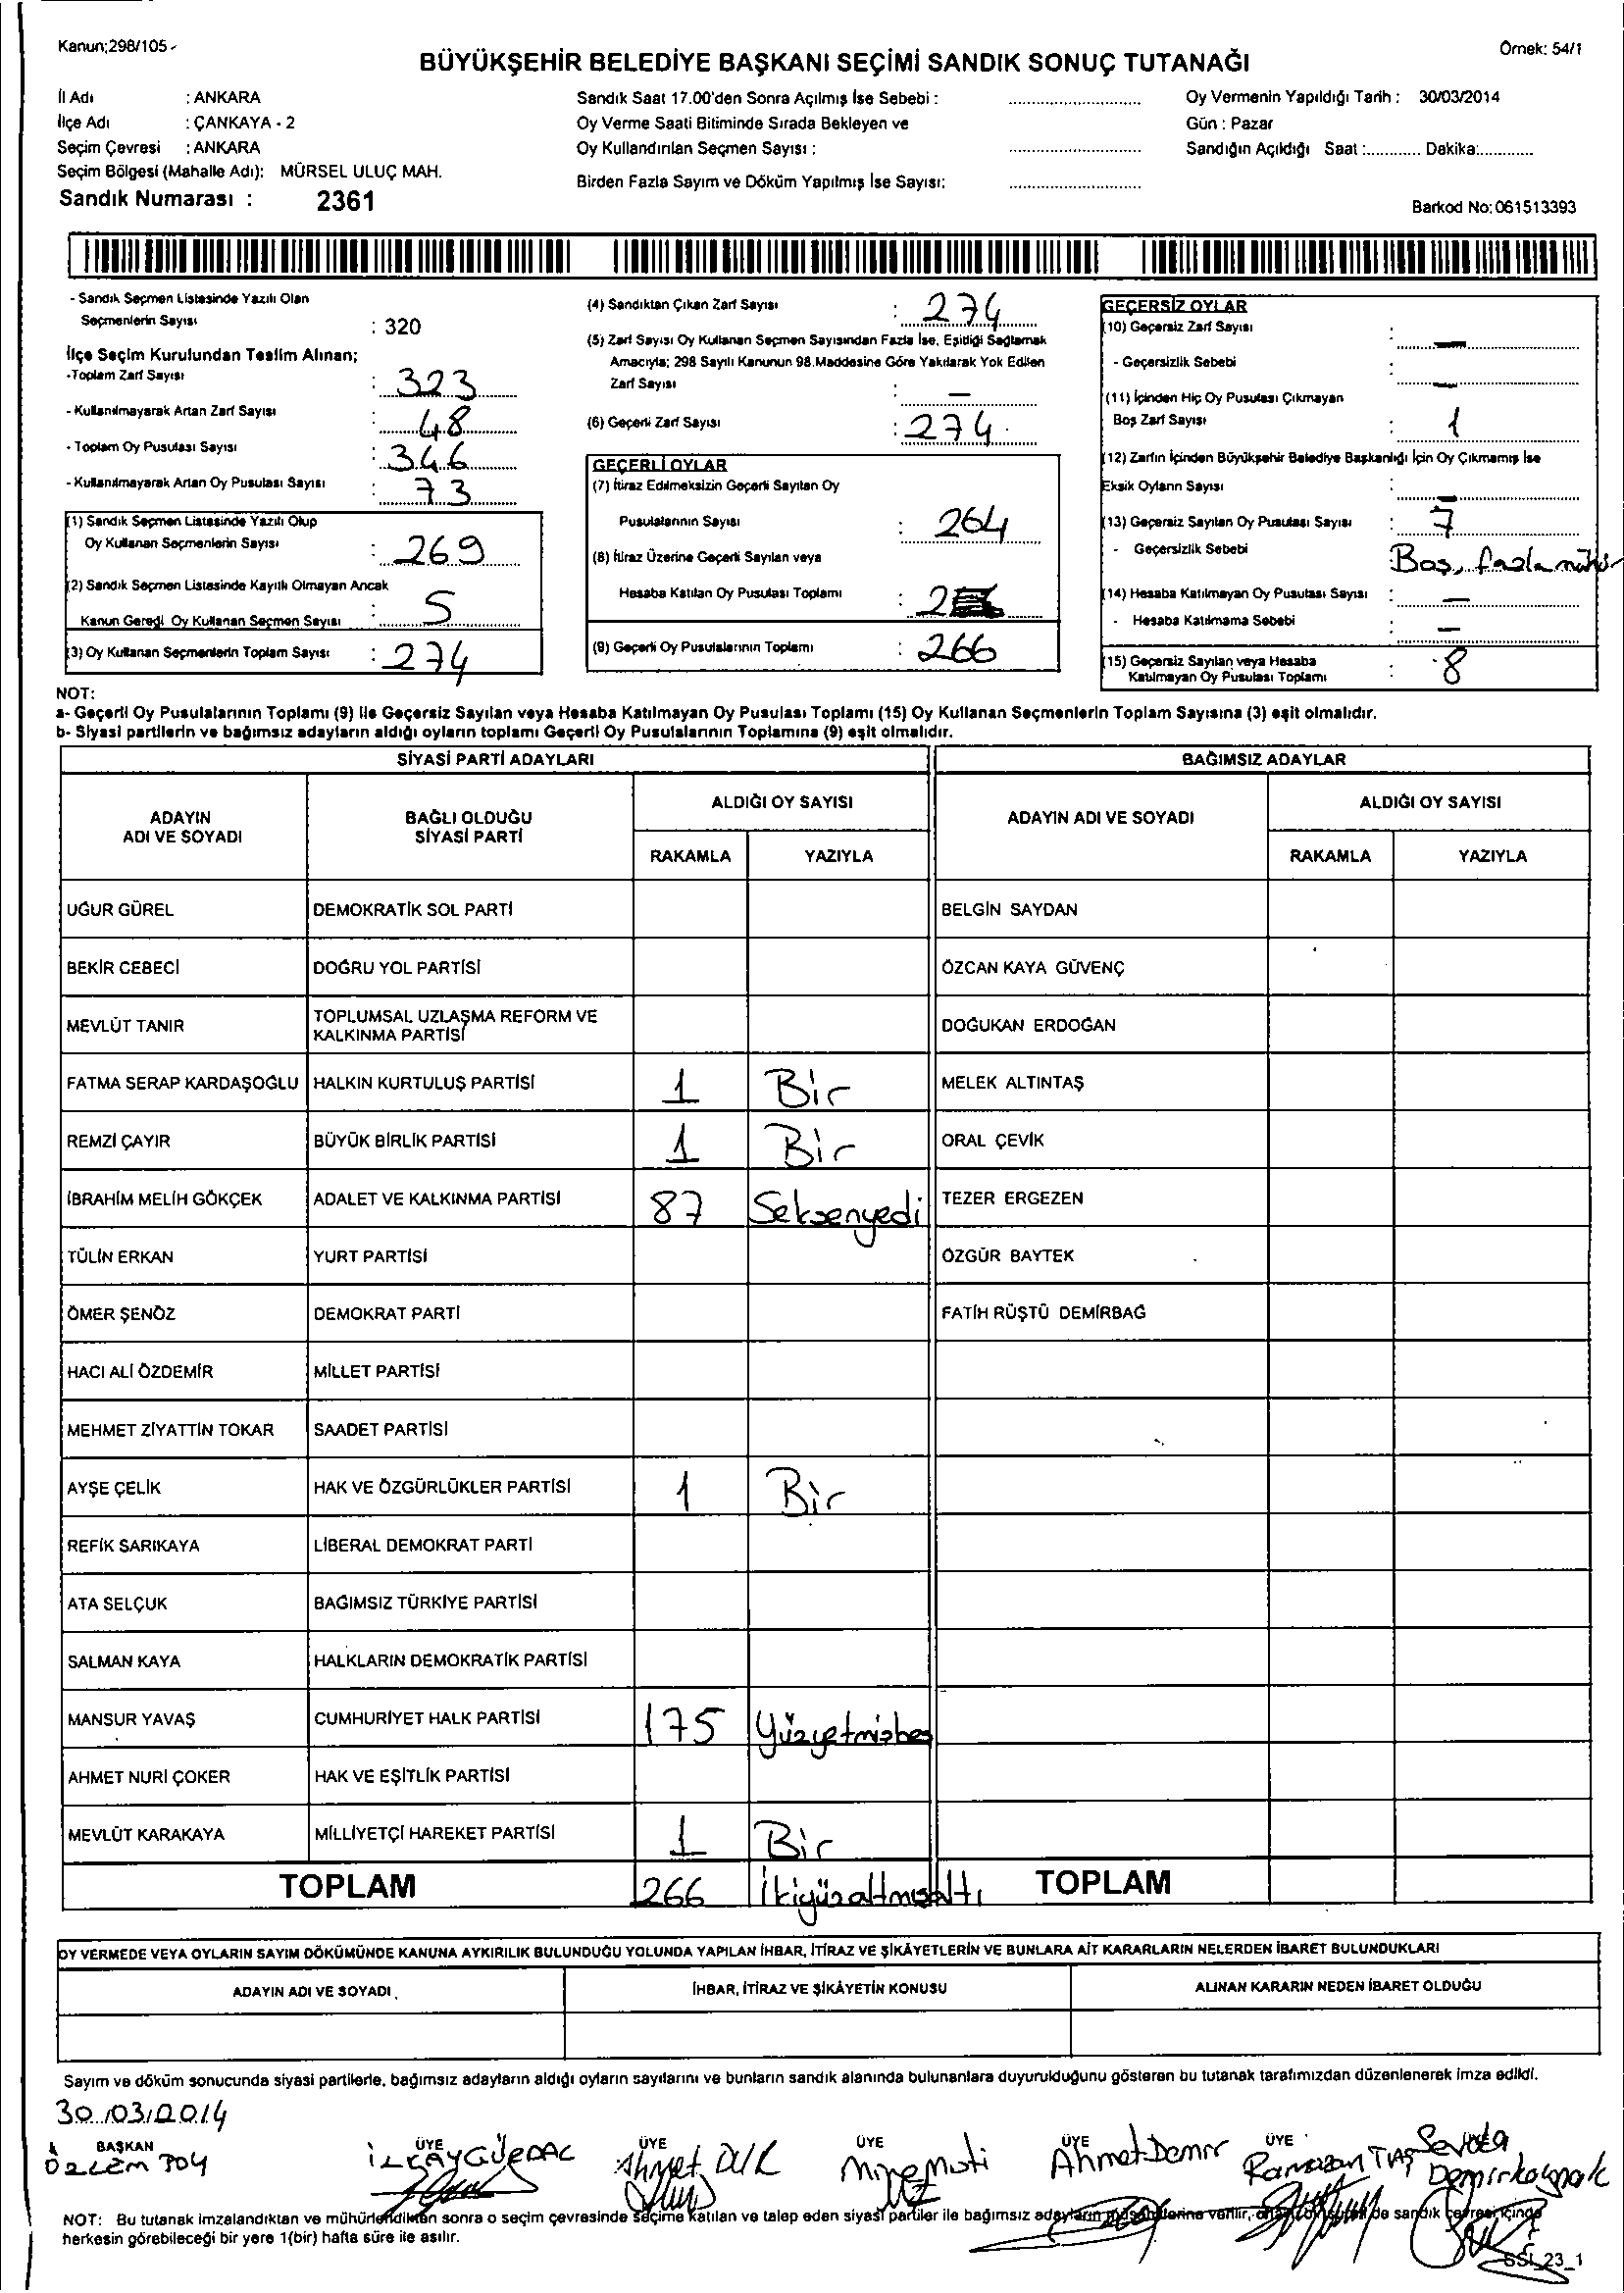 Kanun;298/105
Örnek: 54/1
BÜYÜKŞEHİR BELEDİYE BAŞKANI SEÇİMİ SANDIK SONUÇ TUTANAĞI
İl Adı : ANKARA
İlçe Adı : ÇANKAYA - 2
Seçim Çevresi : ANKARA
Seçim Bölgesi (Mahalle Adı): MÜRSEL ULUÇ MAH.
Sandık Numarası : 2361
Sandık Saat 17.00'den Sonra Açılmış İse Sebebi :
Oy Verme Saati Bitiminde Sırada Bekleyen ve
Oy Kullandırılan Seçmen Sayısı :
Birden Fazla Sayım ve Döküm Yapılmış İse Sayısı:
Oy Vermenin Yapıldığı Tarih : 30/03/2014
Gün : Pazar
Sandığın Açıldığı Saat :............ Dakika:............
Barkod No: 061513393
- Sandık Seçmen Listesinde Yazılı Olan
Seçmenlerin Sayısı : 320
İlçe Seçim Kurulundan Teslim Alınan;
-Toplam Zarf Sayısı : 323
- Kullanılmayarak Artan Zarf Sayısı : 48
- Toplam Oy Pusulası Sayısı : 346
- Kullanılmayarak Artan Oy Pusulası Sayısı : 73
(1) Sandık Seçmen Listesinde Yazılı Olup
Oy Kullanan Seçmenlerin Sayısı : 269
(2) Sandık Seçmen Listesinde Kayıtlı Olmayan Ancak
Kanun Gereği Oy Kullanan Seçmen Sayısı : 5
(3) Oy Kullanan Seçmenlerin Toplam Sayısı : 274
(4) Sandıktan Çıkan Zarf Sayısı : 274
(5) Zarf Sayısı Oy Kullanan Seçmen Sayısından Fazla İse, Eşitliği Sağlamak
Amacıyla; 298 Sayılı Kanunun 98.Maddesine Göre Yakılarak Yok Edilen
Zarf Sayısı : —
(6) Geçerli Zarf Sayısı : 274
GEÇERLİ OYLAR
(7) İtiraz Edilmeksizin Geçerli Sayılan Oy
Pusulalarının Sayısı : 264
(8) İtiraz Üzerine Geçerli Sayılan veya
Hesaba Katılan Oy Pusulası Toplamı : 2
(9) Geçerli Oy Pusulalarının Toplamı : 266
GEÇERSİZ OYLAR
(10) Geçersiz Zarf Sayısı : —
- Geçersizlik Sebebi : —
(11) İçinden Hiç Oy Pusulası Çıkmayan
Boş Zarf Sayısı : 1
(12) Zarfın İçinden Büyükşehir Belediye Başkanlığı İçin Oy Çıkmamış İse
Eksik Oyların Sayısı : —
(13) Geçersiz Sayılan Oy Pusulası Sayısı : 7
- Geçersizlik Sebebi : Boş, fazla mühür
(14) Hesaba Katılmayan Oy Pusulası Sayısı : —
- Hesaba Katılmama Sebebi : —
(15) Geçersiz Sayılan veya Hesaba
Katılmayan Oy Pusulası Toplamı : 8
NOT:
a- Geçerli Oy Pusulalarının Toplamı (9) ile Geçersiz Sayılan veya Hesaba Katılmayan Oy Pusulası Toplamı (15) Oy Kullanan Seçmenlerin Toplam Sayısına (3) eşit olmalıdır.
b- Siyasi partilerin ve bağımsız adayların aldığı oyların toplamı Geçerli Oy Pusulalarının Toplamına (9) eşit olmalıdır.
SİYASİ PARTİ ADAYLARI
BAĞIMSIZ ADAYLAR
ADAYIN
ADI VE SOYADI
BAĞLI OLDUĞU
SİYASİ PARTİ
ALDIĞI OY SAYISI
RAKAMLA YAZIYLA
ADAYIN ADI VE SOYADI
ALDIĞI OY SAYISI
RAKAMLA YAZIYLA
UĞUR GÜREL DEMOKRATİK SOL PARTİ BELGİN SAYDAN
BEKİR CEBECİ DOĞRU YOL PARTİSİ ÖZCAN KAYA GÜVENÇ
MEVLÜT TANIR TOPLUMSAL UZLAŞMA REFORM VE
KALKINMA PARTİSİ DOĞUKAN ERDOĞAN
FATMA SERAP KARDAŞOĞLU HALKIN KURTULUŞ PARTİSİ 1 Bir MELEK ALTINTAŞ
REMZİ ÇAYIR BÜYÜK BİRLİK PARTİSİ 1 Bir ORAL ÇEVİK
İBRAHİM MELİH GÖKÇEK ADALET VE KALKINMA PARTİSİ 87 Seksenyedi TEZER ERGEZEN
TÜLİN ERKAN YURT PARTİSİ ÖZGÜR BAYTEK
ÖMER ŞENÖZ DEMOKRAT PARTİ FATİH RÜŞTÜ DEMİRBAĞ
HACI ALİ ÖZDEMİR MİLLET PARTİSİ
MEHMET ZİYATTİN TOKAR SAADET PARTİSİ
AYŞE ÇELİK HAK VE ÖZGÜRLÜKLER PARTİSİ 1 Bir
REFİK SARIKAYA LİBERAL DEMOKRAT PARTİ
ATA SELÇUK BAĞIMSIZ TÜRKİYE PARTİSİ
SALMAN KAYA HALKLARIN DEMOKRATİK PARTİSİ
MANSUR YAVAŞ CUMHURİYET HALK PARTİSİ 175 Yüzyetmişbeş
AHMET NURİ ÇOKER HAK VE EŞİTLİK PARTİSİ
MEVLÜT KARAKAYA MİLLİYETÇİ HAREKET PARTİSİ 1 Bir
TOPLAM 266 İkiyüzaltmışaltı TOPLAM
OY VERMEDE VEYA OYLARIN SAYIM DÖKÜMÜNDE KANUNA AYKIRILIK BULUNDUĞU YOLUNDA YAPILAN İHBAR, İTİRAZ VE ŞİKÂYETLERİN VE BUNLARA AİT KARARLARIN NELERDEN İBARET BULUNDUKLARI
ADAYIN ADI VE SOYADI İHBAR, İTİRAZ VE ŞİKÂYETİN KONUSU ALINAN KARARIN NEDEN İBARET OLDUĞU
Sayım ve döküm sonucunda siyasi partilerle, bağımsız adayların aldığı oyların sayılarını ve bunların sandık alanında bulunanlara duyurulduğunu gösteren bu tutanak tarafımızdan düzenlenerek imza edildi.
30/03/2014
BAŞKAN ÜYE ÜYE ÜYE ÜYE ÜYE
Ahmet Demir Ramazan Sevda
NOT: Bu tutanak imzalandıktan ve mühürlendikten sonra o seçim çevresinde seçime katılan ve talep eden siyasi partiler ile bağımsız adayların verilir, de sandık çevresi içinde
herkesin görebileceği bir yere 1(bir) hafta süre ile asılır.
SSI_23_1